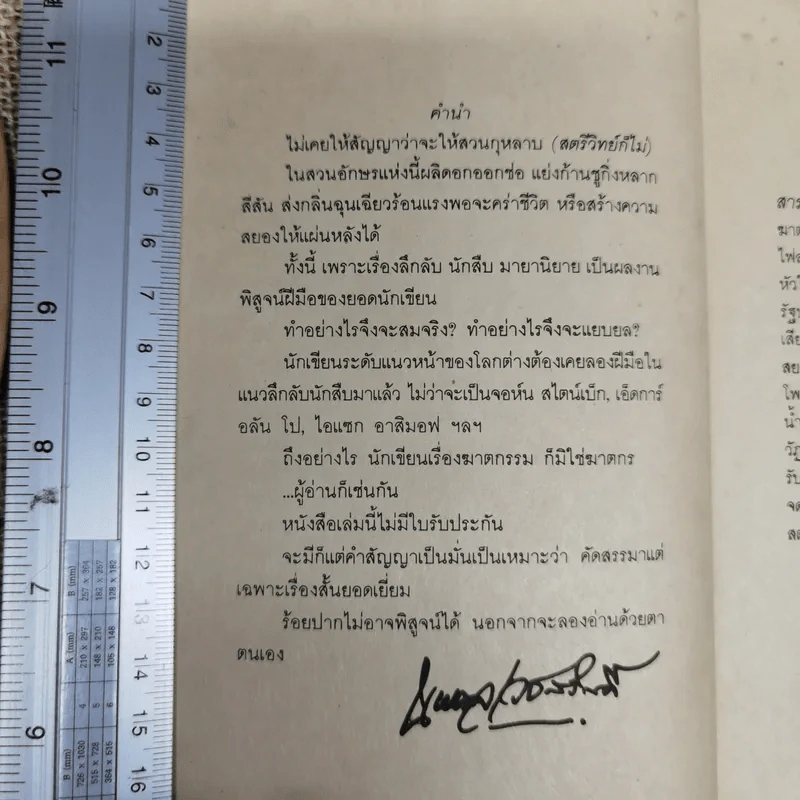 คำนำ
ไม่เคยให้สัญญาว่าจะให้สวนกุหลาบ (สตรีวิทย์ก็ไม่)
ในสวนอักษรแห่งนี้ผลิดอกออกช่อ แย่งก้านชูกิ่งหลาก
สีสัน ส่งกลิ่นฉุนเฉียวร้อนแรงพอจะคร่าชีวิต หรือสร้างความ
สยองให้แผ่นหลังได้
ทั้งนี้ เพราะเรื่องลึกลับ นักสืบ มายานิยาย เป็นผลงาน
พิสูจน์ฝีมือของยอดนักเขียน
ทำอย่างไรจึงจะสมจริง? ทำอย่างไรจึงจะแยบยล?
นักเขียนระดับแนวหน้าของโลกต่างต้องเคยลองฝีมือใน
แนวลึกลับนักสืบมาแล้ว ไม่ว่าจะเป็นจอห์น สไตน์เบ็ก, เอ็ดการ์
อลัน โป, ไอแซก อาสิมอฟ ฯลฯ
ถึงอย่างไร นักเขียนเรื่องฆาตกรรม ก็มิใช่ฆาตกร
...ผู้อ่านก็เช่นกัน
หนังสือเล่มนี้ไม่มีใบรับประกัน
จะมีก็แต่คำสัญญาเป็นมั่นเป็นเหมาะว่า คัดสรรมาแต่
เฉพาะเรื่องสั้นยอดเยี่ยม
ร้อยปากไม่อาจพิสูจน์ได้ นอกจากจะลองอ่านด้วยตา
ตนเอง
11
10
9
8
7
6
2
3
4
5
6
7
8
9
10
11
12
13
14
15
16
B (mm)
257 x 364
182 x 257
128 x 182
A (mm)
210 x 297
148 x 210
105 x 148
4
5
6
B (mm)
728 x 1030
515 x 728
364 x 515